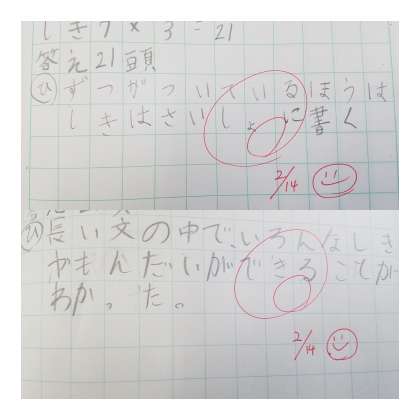 しき7×3=21
答え21頭
ひ ずつがついているほうは
しきはさいしょに書く
2/14
長い文の中で、いろんなしき
やもんだいができることが
わかった。
2/14